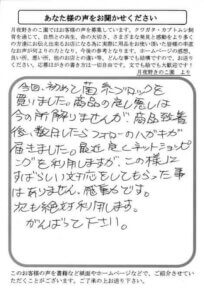 あなた様の声をお聞かせください
月夜野きのこ園ではお客様の声を募集しています。クワガタ・カブトムシ飼
育を通じて、自然との共生、命の大切さ、さまざまな発見と感動をより多く
の方達にお伝え出来るお店になる為に実際に用品をお使い頂いた皆様の率直
なお声が何よりの力となり、今後の参考となります。ホームページの感想、
良い所、悪い所、他のお店との違い等、どんな事でも結構ですので、お送り
ください。応募はがきの書き方は一切自由です。文でも絵でも大歓迎です!
月夜野きのこ園 より
今回、初めて菌糸ブロックを
買いました。商品の良し悪しは
今の所解りませんが、商品到着
後、数日したらフォローのハガキが
届きました。最近良くネットショッピ
ングを利用しますが、この様に
すばらしい対応をしてもらった事
はありません、感動です。
次も絶対利用します。
がんばって下さい。
このお客様の声を書籍など紙面やホームページなどで、ご紹介させてい
ただくことがございます。ご了承の上お送り下さい。